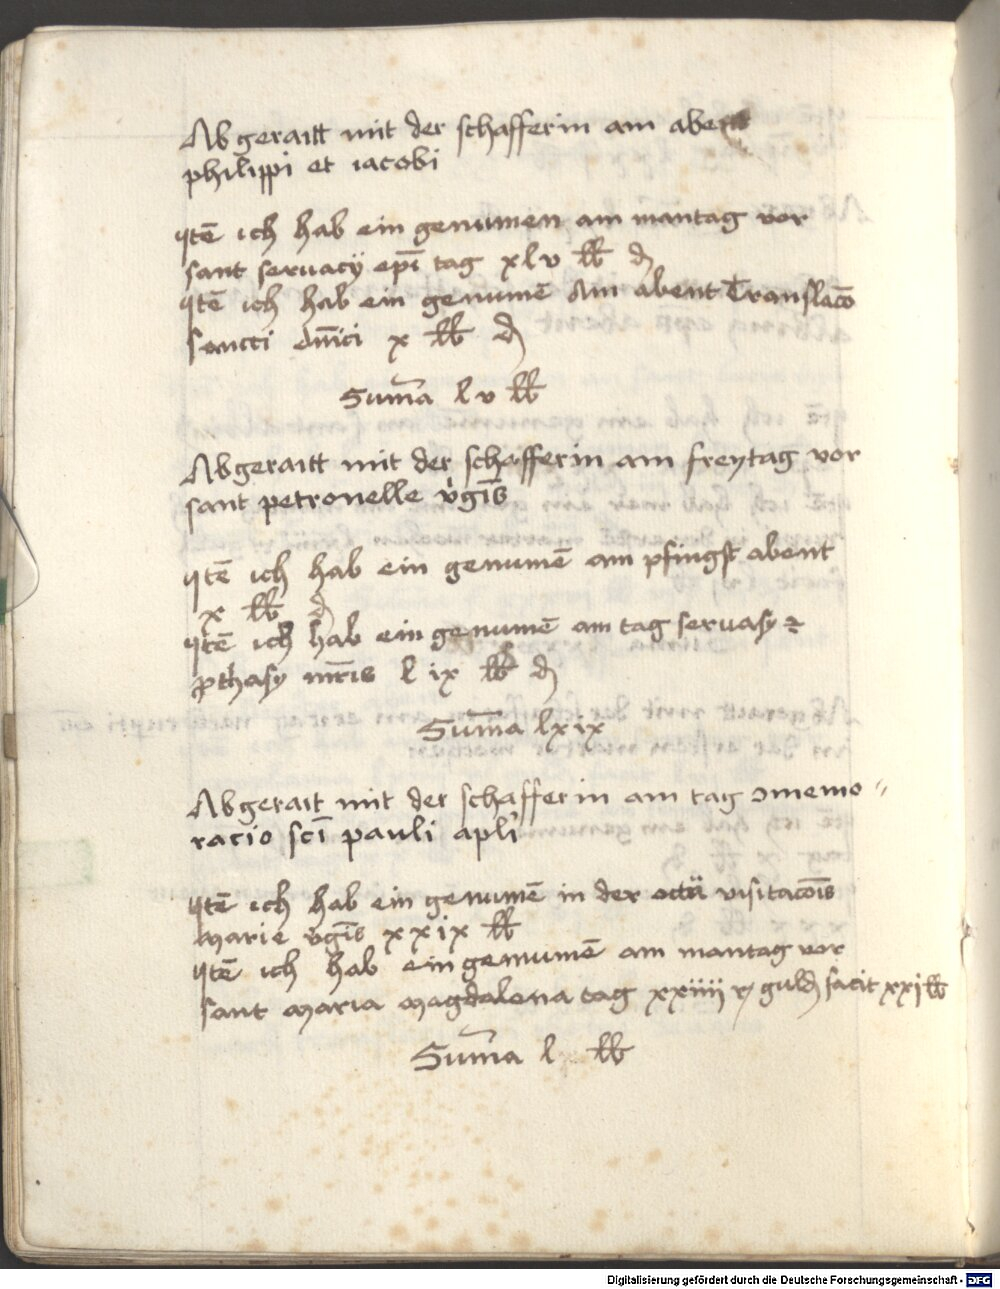 Abgeraitt mit der schafferin am abent
philippi et iacobi
Itē ich hab ein genumen am mantag vor
sant seruacÿ epī tag xlv lb d
Itē ich hab ein genumē Am abent Translacō
sancti dn̄ici x lb d
Sum̄a lv lb
Abgeraitt mit der schafferin am freytag vor
sant petronelle v̓gīs
Itē ich hab ein genumē am pfingst abent
x lb d
Itē ich hab ein genumē am tag seruasy ⁊
ꝓthasy mr̄is lix lb d
Sum̄a lxix
Abgerait mit der schafferin am tag ꝯmemo〃
racio scī pauli apl̓i
Itē ich hab ein genumē in der octā visitacōis
Marie v̓gīs xxix lb
Itē ich hab ein genumē am mantag vor
sant Maria Magdalena tag xxiiii guld facit xxj lb
Sum̄a l lb
Digitalisierung gefördert durch die Deutsche Forschungsgemeinschaft - DFG